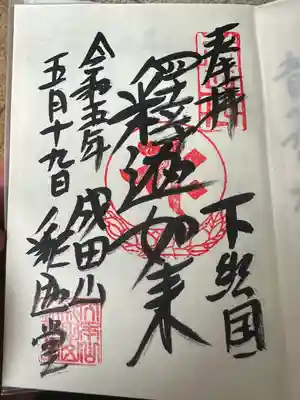 奉拝
下総国
釋迦如来
令和五年
成田山
五月十九日
釈迦堂